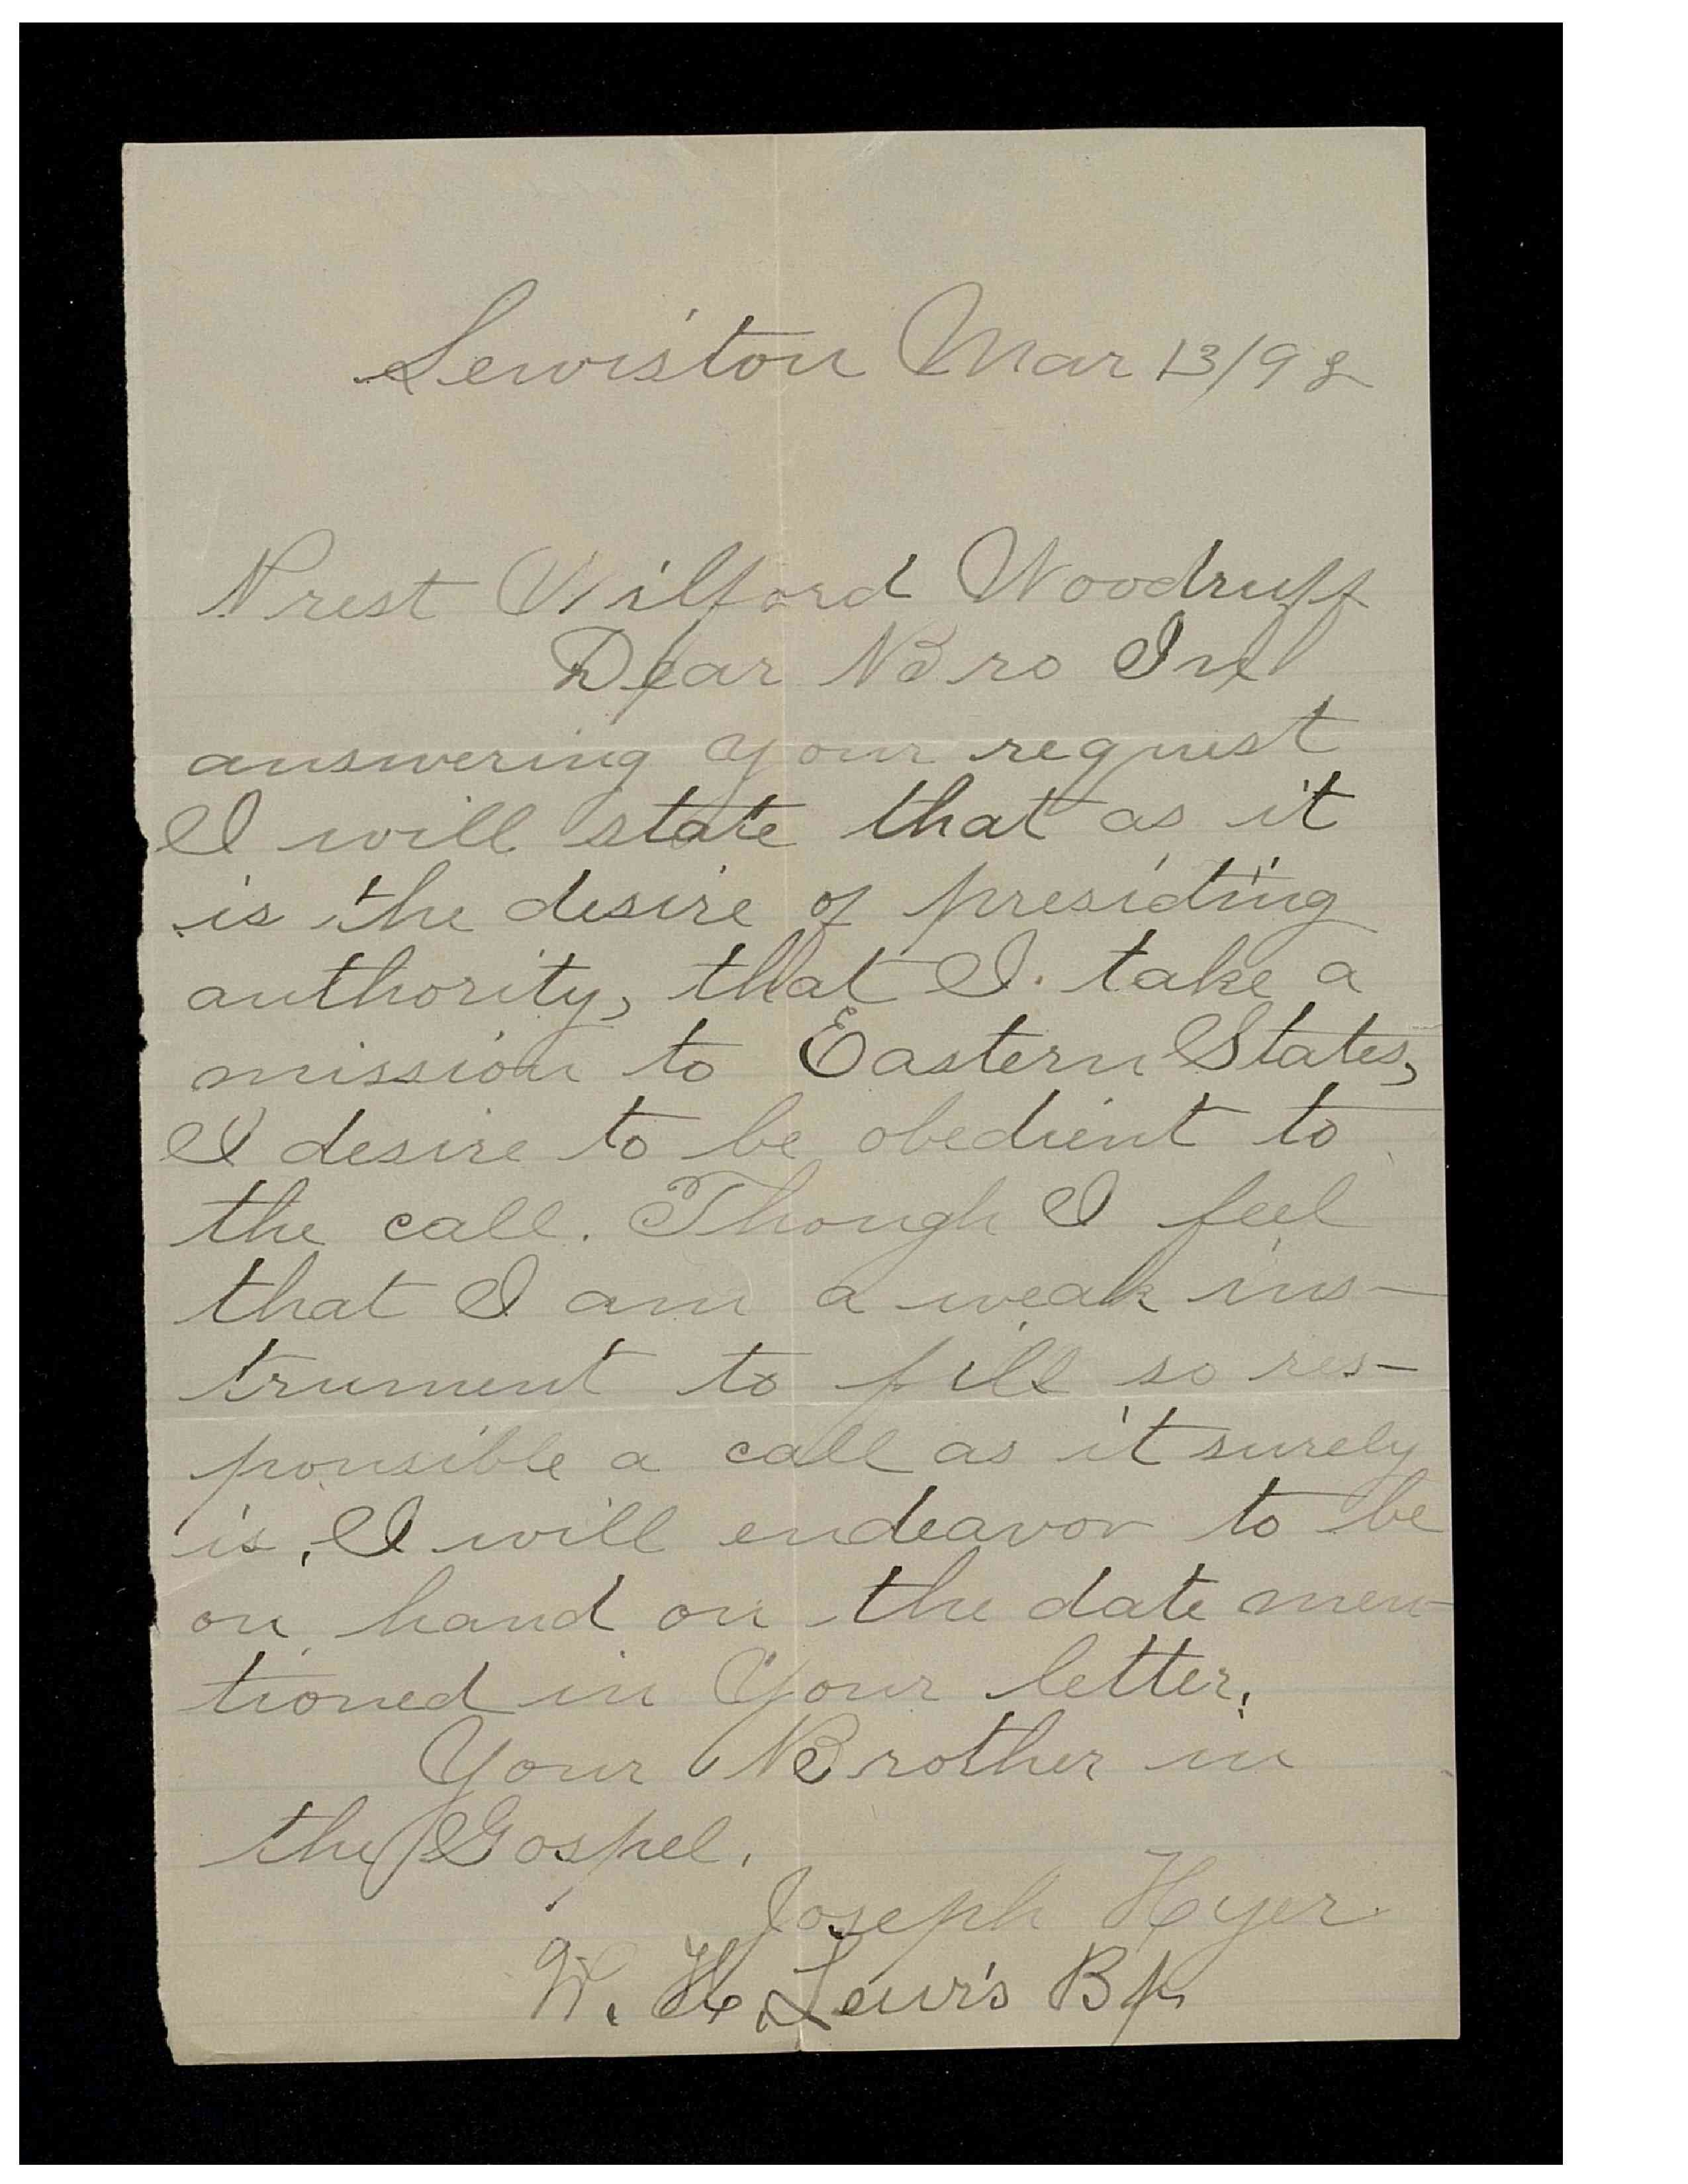 Lewiston Mar 13/98
Prest Wilford Woodruff
Dear Bro In
answering your request
I will state that as it
is the desire of presiding
authority, that I. take a
mission to Eastern States,
I desire to be obedient to
the call. Though I feel
that I am a weak ins-
trument to fill so res-
ponsible a call as it surely
is, I will endeavor to be
on hand on the date men-
tioned in Your letter.
Your Brother in
the Gospel.
Joseph Hyer
W. H. Lewis Bp